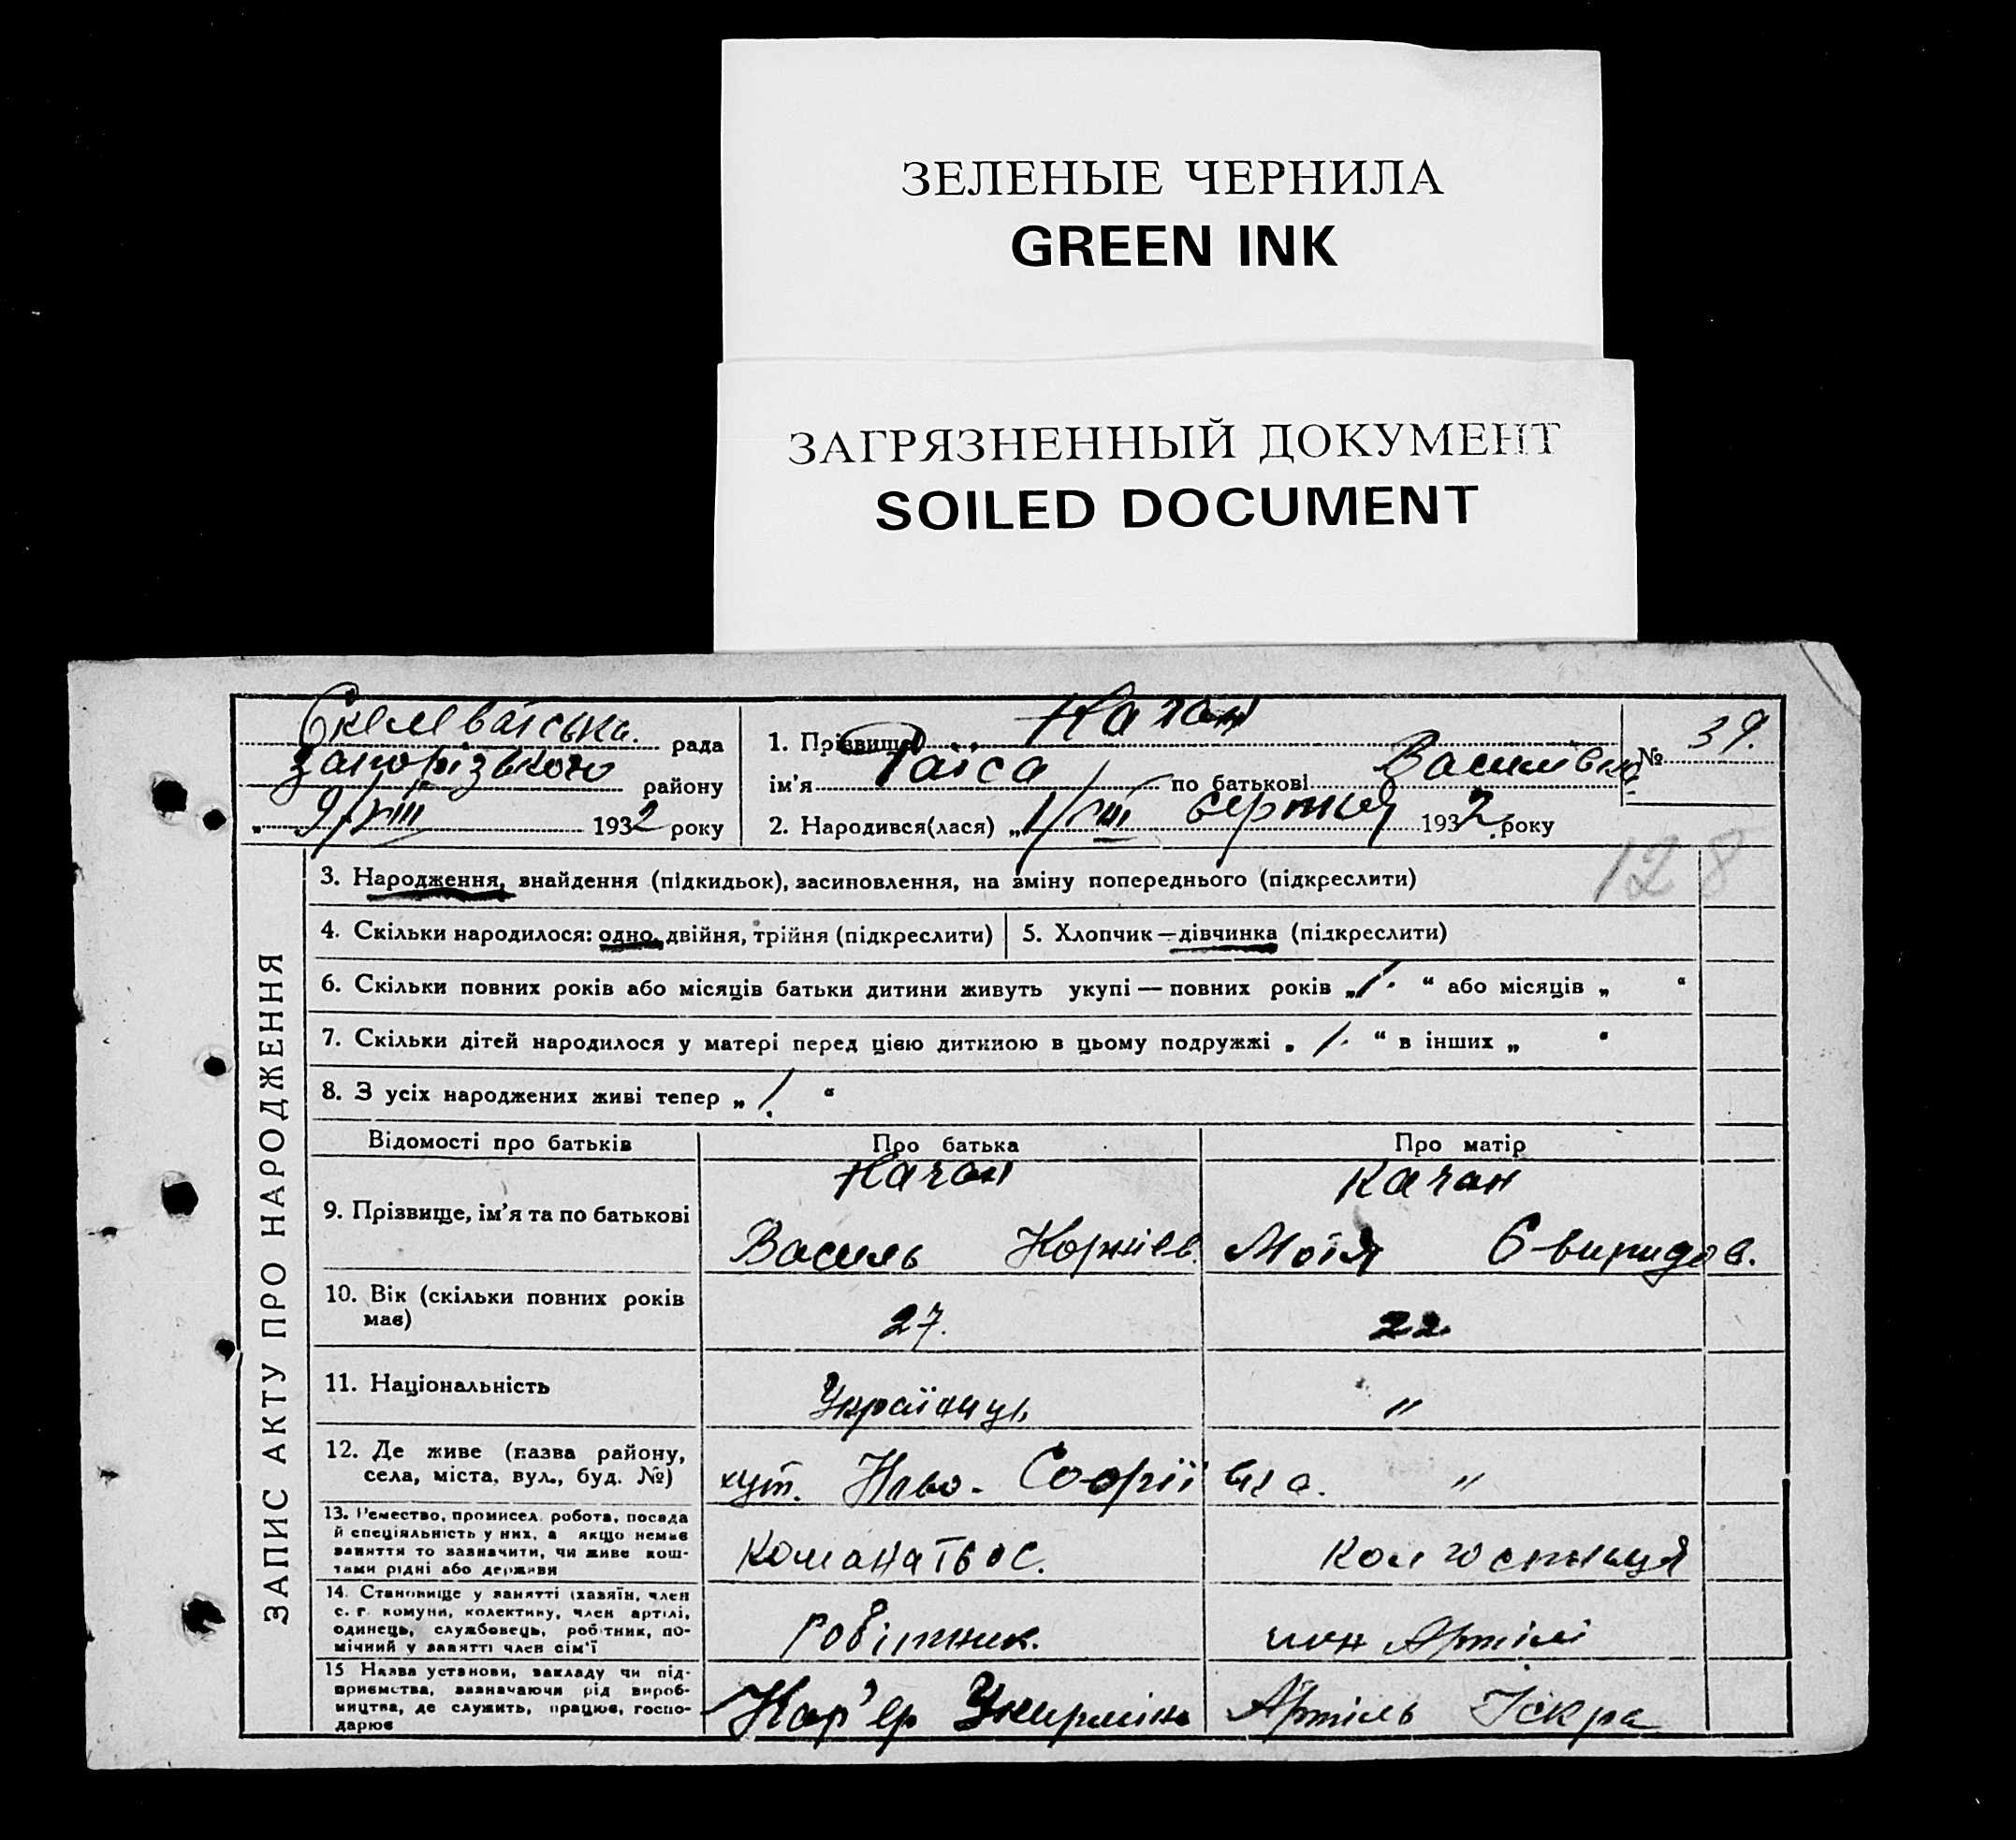 ЗЕЛЕНЫЕ ЧЕРНИЛА
GREEN INK
ЗАГРЯЗНЕННЫЙ ДОКУМЕНТ
SOILED DOCUMENT
Скелеватська рада
Запорізького району
„ 9/VIII 1932 року
1. Прізвище Качан
ім'я Раїса по батькові Василівна
№ 39.
2. Народився(лася) „1/VIII серпня 1932 року
128
ЗАПИС АКТУ ПРО НАРОДЖЕННЯ
3. Народження, знайдення (підкидьок), засиновлення, на зміну попереднього (підкреслити)
4. Скільки народилося: одно, двійня, трійня (підкреслити)
5. Хлопчик — дівчинка (підкреслити)
6. Скільки повних років або місяців батьки дитини живуть укупі — повних років „ 1. “ або місяців „ “
7. Скільки дітей народилося у матері перед цією дитиною в цьому подружжі „ 1. “ в інших „ “
8. З усіх народжених живі тепер „ 1. “
Відомості про батьків Про батька Про матір
9. Прізвище, ім'я та по батькові
Качан
Василь Корнієв.
Качан
Свиридов.
10. Вік (скільки повних років
має)
27.
22
11. Національність
Українць
"
12. Де живе (назва району,
села, міста, вул., буд. №)
хут. Ново-Софіївка. "
13. Ремество, промисел, робота, посада
й спеціяльність у них, а якщо немає
заняття то зазначити, чи живе кош-
тами рідні або держави
колгоспниця
14. Становище у занятті (хазяїн, член
с. г. комуни, колективу, член артілі,
одинець, службовець, робітник, по-
мічний у занятті член сім'ї
робітник.
член Артілі
15 Назва установи, закладу чи під-
приємства, зазначаючи рід вироб-
ництва, де служить, працює, госпо-
дарює
Кар'єр
Артіль Іскра